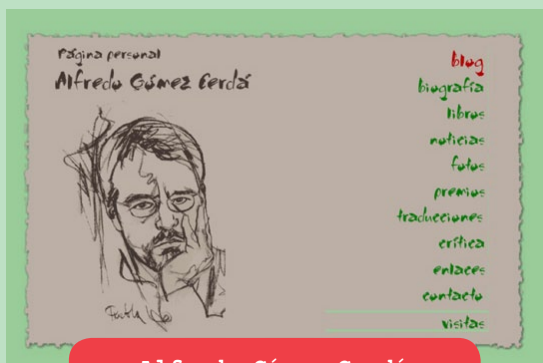 Página personal
Alfredo Gómez Cerdá
blog
biografía
libros
noticias
fotos
premios
traducciones
crítica
enlaces
contacto
visitas
Alfredo Gómez Cerdá